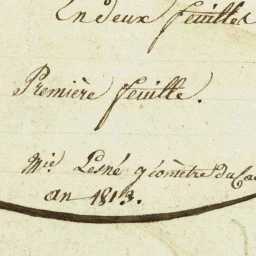 En deux feuilles
Première feuille.
Mie. Lesné géomètre du Ca
an 1813.